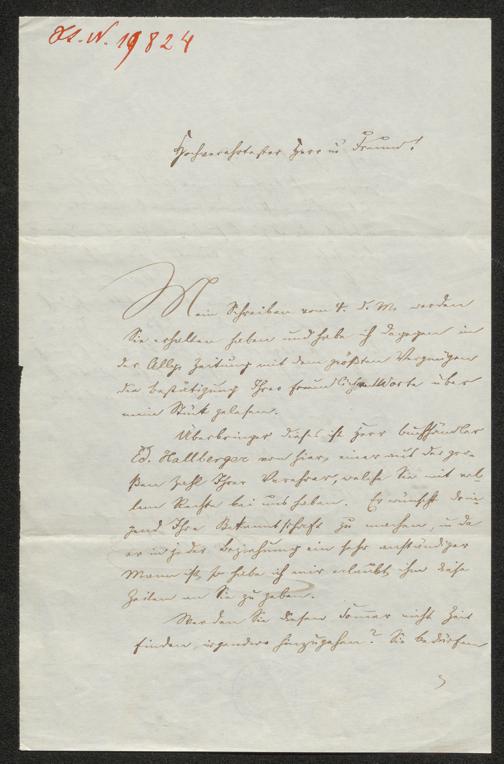 Hs. N. 19824
Hochverehrtester Herr u. Freund!
Mein Schreiben vom 4. d. M. werden
Sie erhalten haben und habe ich dagegen in
der Allg. Zeitung mit dem größten Vergnügen
die Bestätigung Ihrer freundlichen Worte über
mein Stück gelesen.
Überbringer dieses ist Herr Buchhändler
Ed. Hallberger von hier, einer aus der gro-
ßen Zahl Ihrer Verehrer, welche Sie mit vol-
lem Rechte bei uns haben. Er wünscht drin-
gend Ihre Bekanntschaft zu machen, u. da
er in jeder Beziehung ein sehr anständiger
Mann ist, so habe ich mir erlaubt, ihm diese
Zeilen an Sie zu geben.
Werden Sie diesen Sommer nicht Zeit
finden, irgendwo hinzugehen? Sie bedürfen